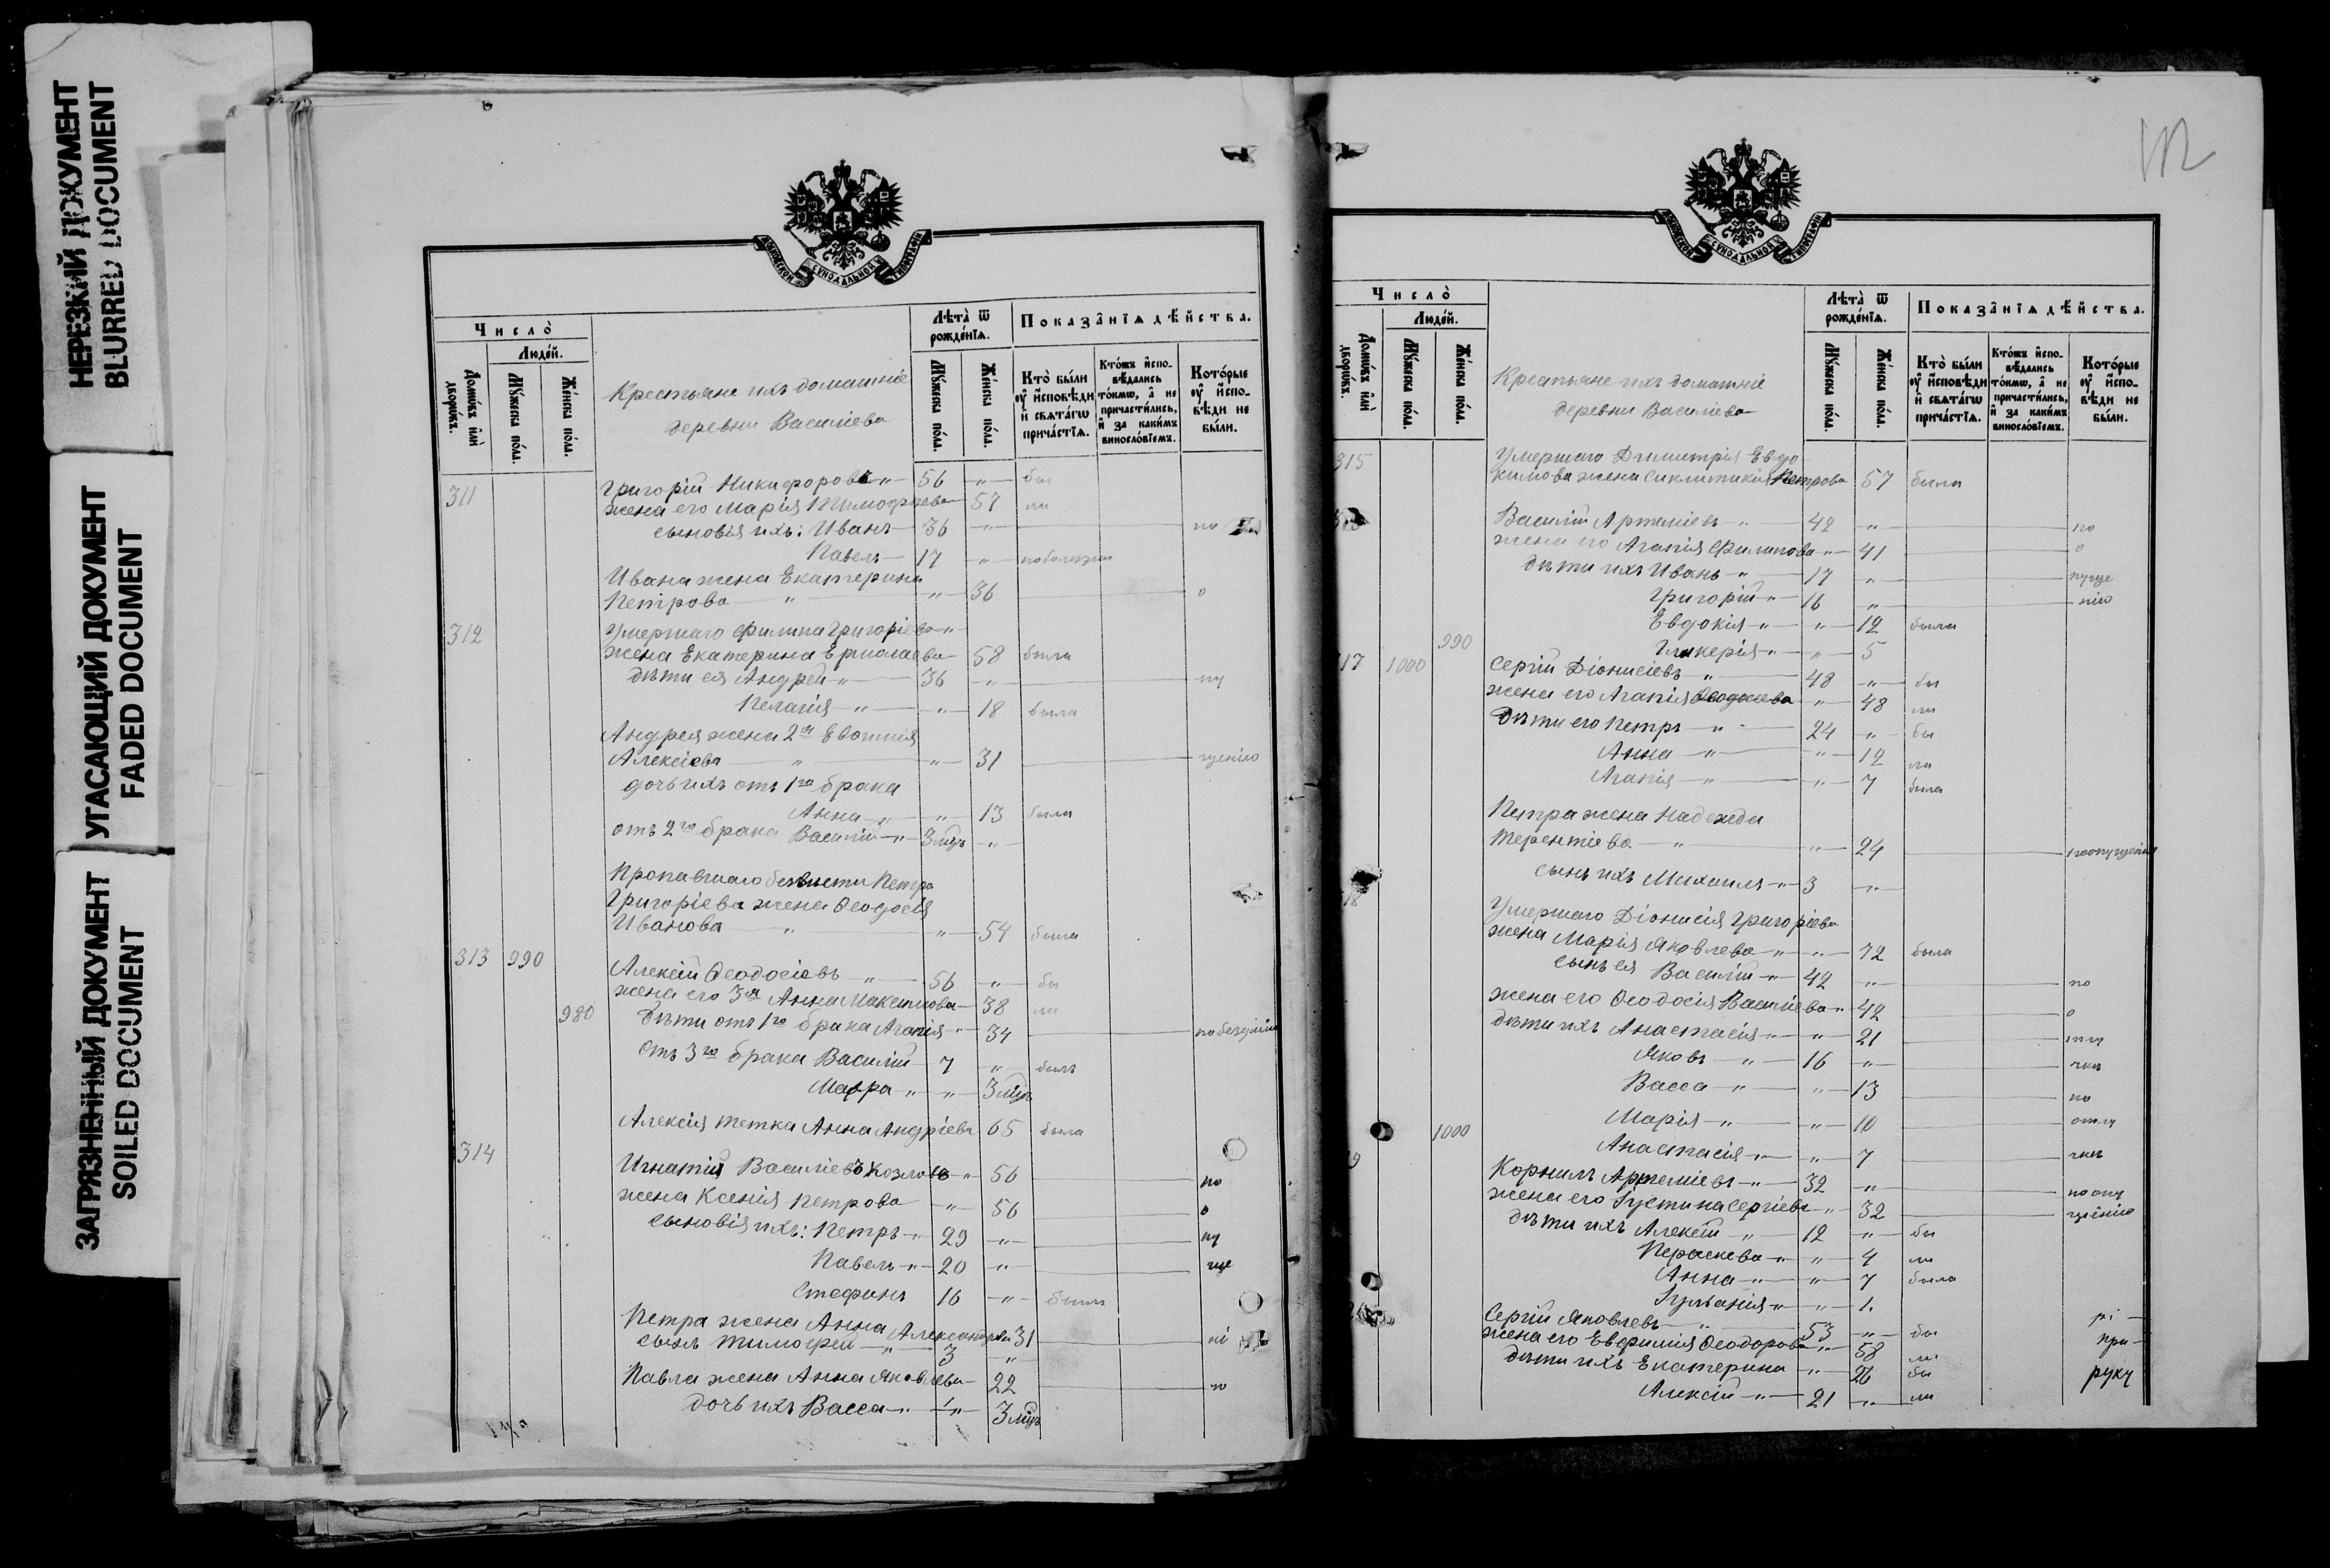 НЕРЕЗКИЙ ДОКУМЕНТ
BLURRED DOCUMENT
УГАСАЮЩИЙ ДОКУМЕНТ
FADED DOCUMENT
ЗАГРЯЗНЕННЫЙ ДОКУМЕНТ
SOILED DOCUMENT
МОСКОВСКОЙ СУНОДАЛЬНОЙ ТИПОГРАФІИ
Число̀
Людей.
Домѡвъ и҆лѝ дворѡвъ.
Мꙋ́жеска по́ла.
Же́нска по́ла.
Крестьяне ихъ домашніе
деревни Василіева
Лѣта̀ ѿ рожде́нїѧ.
Мꙋ́жеска по́ла.
Же́нска по́ла.
Показа̂нїѧ дѣ́йства.
Кто̀ бы́ли ᲂу҆ и҆сповѣди и҆ свѧта́гѡ прича́стїѧ.
Кто́жъ и҆спо-вѣдались то́кмѡ, а҆ не причасти́лись, и҆ за каки́мъ винослові́емъ.
Кото́рые ᲂу҆ и҆спо-вѣди не бы́ли.
311 Григорій Никифоровъ " 56 " бы
жена его Марія Тимофеева 57 ли
сыновія ихъ: Иванъ 36 " по
Павелъ 17 " по болезни
Ивана жена Екатерина
Петрова " " 36 о
312 Умершаго Филипа Григоріева "
жена Екатерина Ермолаева 58 была
дѣти ея Андрей " 36 " пу
Пелагія " " 18 была
Андрея жена 2я Евѳимія
Алексіева " " 31 щенію
дочь ихъ отъ 1го брака
Анна " " 13 была
отъ 2го брака Василій " 3 мѣц "
Пропавшаго безвисти Петра
Григоріева жена Ѳеодосія
Иванова " " 54 была
313 990 Алексій Ѳеодосіевъ " 56 " бы
жена его 3я Анна Максимова 38 ли
980 Дѣти отъ 1го брака Агапія " 34
Отъ 3го брака Василій 7 " былъ
Мавра " " 3 мѣц
Алексія тетка Анна Андріева 65 была
314 Игнатій Василіевъ Козловъ " 56 по
жена Ксенія Петрова " 56 о
сыновія ихъ: Петръ " 29 " пу
Павелъ " 20 " ще
Стефанъ 16 " былъ
Петра жена Анна Александрова 31 ні
сынъ Тимофей " 3 "
Павла жена Анна Яковлева 22 ю
дочь ихъ Васса " " 3 мѣц
МОСКОВСКОЙ СУНОДАЛЬНОЙ ТИПОГРАФІИ
Число̀
Людей.
Домѡвъ и҆лѝ дворѡвъ.
Мꙋ́жеска по́ла.
Же́нска по́ла.
Крестьяне ихъ домашніе
деревни Василіева
Лѣта̀ ѿ рожде́нїѧ.
Мꙋ́жеска по́ла.
Же́нска по́ла.
Показа̂нїѧ дѣ́йства.
Кто̀ бы́ли ᲂу҆ и҆сповѣди и҆ свѧта́гѡ прича́стїѧ.
Кто́жъ и҆спо-вѣдались то́кмѡ, а҆ не причасти́лись, и҆ за каки́мъ винослові́емъ.
Кото́рые ᲂу҆ и҆спо-вѣди не бы́ли.
315 Умершаго Димитрія Евдо
кимова жена Синклитикія Петрова 57 была
Василій Артеміевъ " 42 " по
жена его Агапія Филипова " 41 о
дѣти ихъ Иванъ " 17 " пуще
Григорій " 16 " нію
Евдокія " " 12 была
990 Гликерія " " 5
17 1000 Сергій Діонисіевъ " 48 " бы
жена его Агапія Ѳеодосіева " 48 ли
Дѣти его Петръ " 24 " бы
Анна " " 12 ли
Агапія " " 7 была
Петра жена Надежда
Терентіева " " 24 по опущенію
сынъ ихъ Михаилъ " 3 "
18 Умершаго Діонисія Григоріева
жена Марія Яковлева " " 72 была
сынъ ея Василій " 42 " по
жена его Ѳеодосія Василіева " 42 о
дѣти ихъ Анастасія " " 21 тлу
Яковъ " 16 " чкѣ
Васса " " 13 по
Марія " " 10 отлу
1000 Анастасія " " 7 чкѣ
Корнилъ Артеміевъ " 32 " по опу
жена его Іустина Сергіева " 32 щенію
дѣти ихъ Алексій " 12 " бы
Параскева " " 4 ли
Анна " " 7 была
Іуліанія " " 1.
Сергій Яковлевъ " 53 " бы
жена его Евфимія Ѳеодорова " 58 ли
дѣти ихъ Екатерина " 26 бы
Алексій " 21 " ли